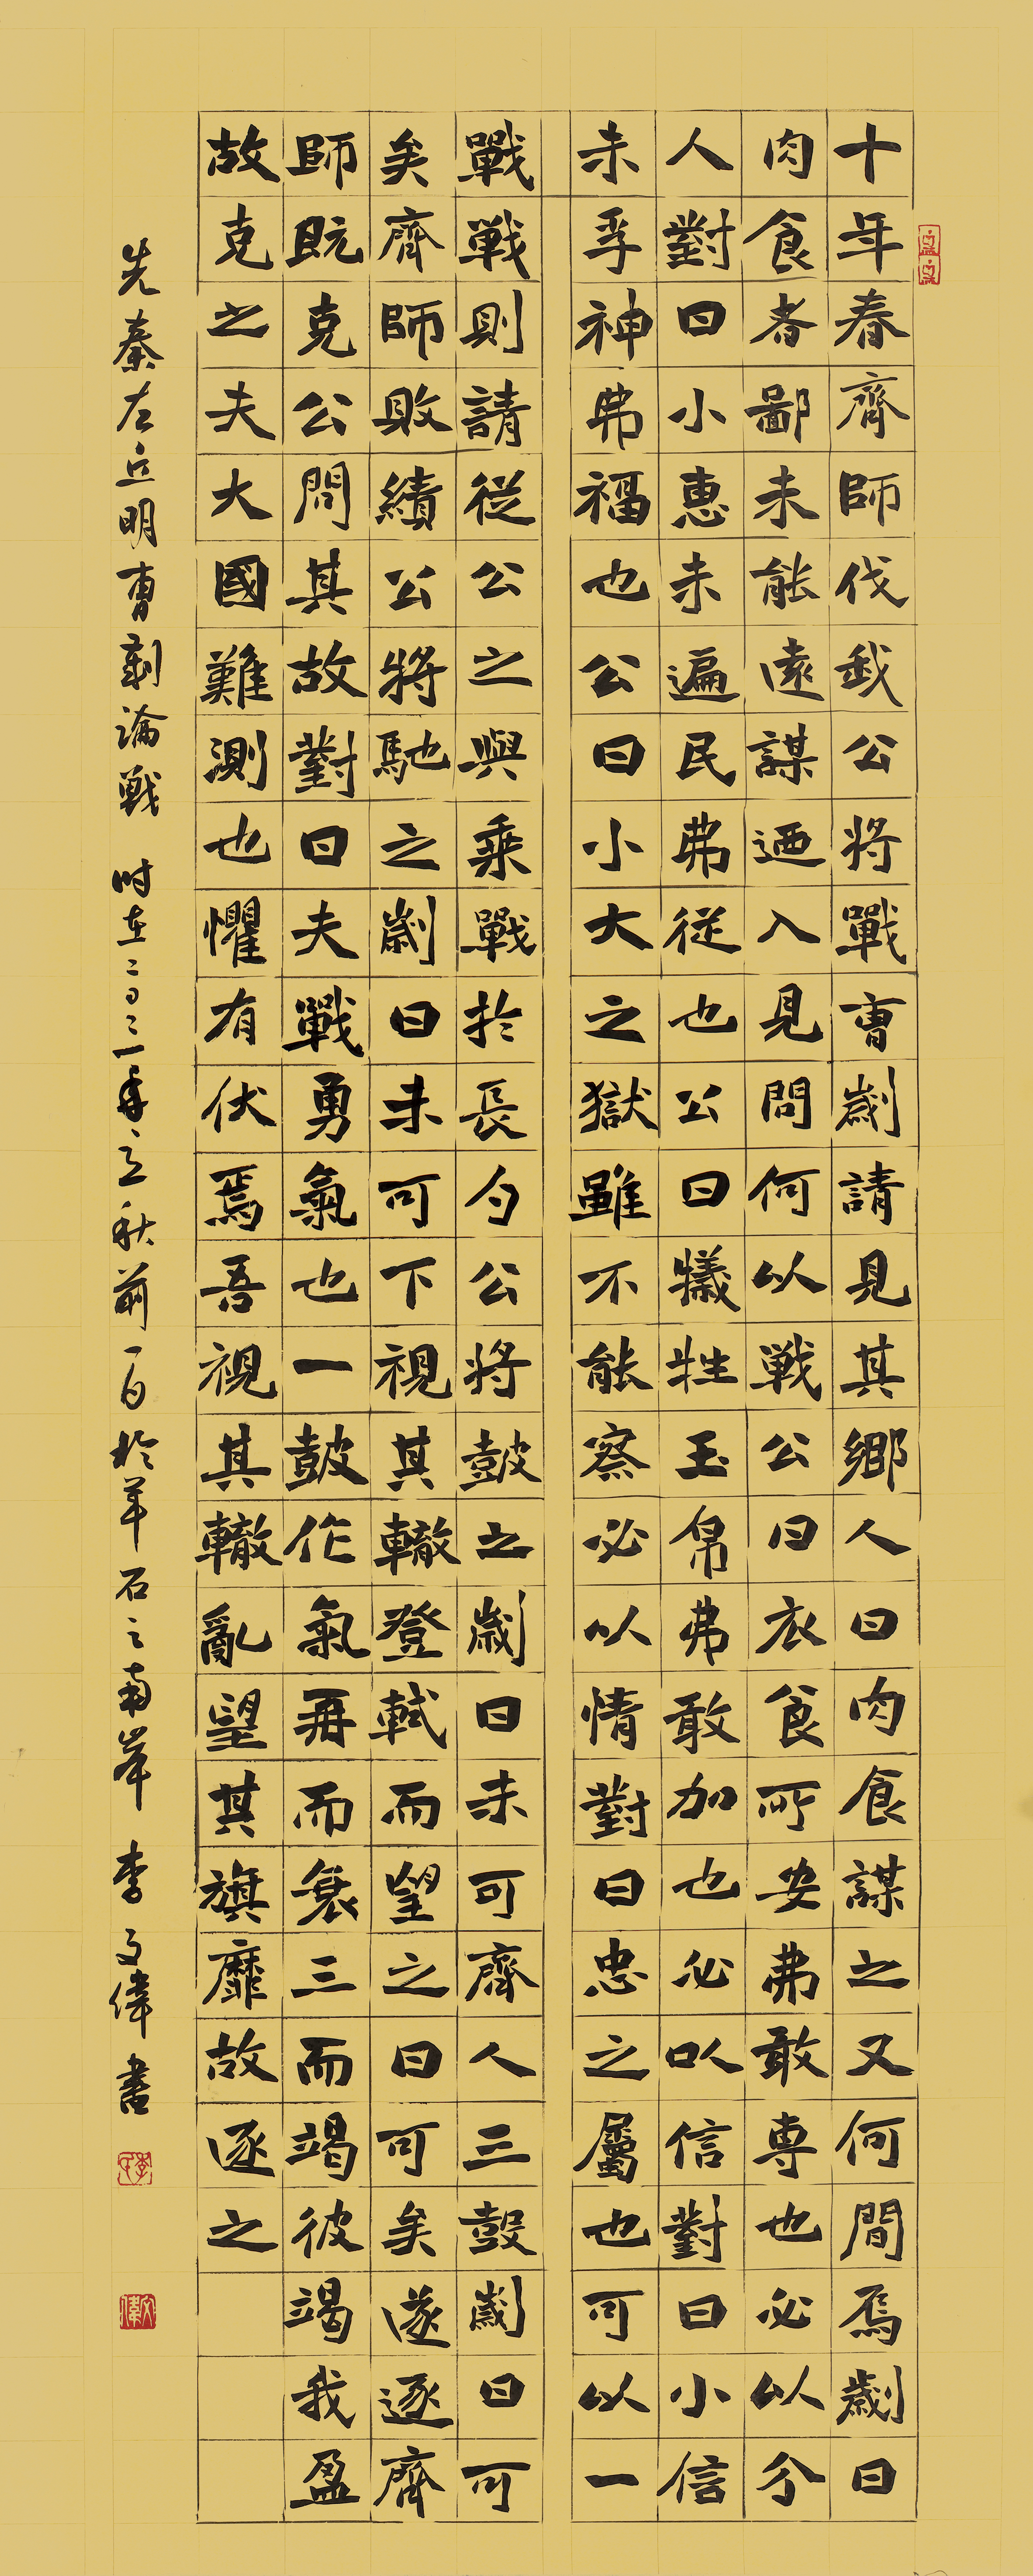 十年春齊師伐我公將戰曹劌請見其鄉人曰肉食謀之又何間焉劌曰
肉食者鄙未能遠謀迺入見問何以戰公曰衣食所安弗敢専也必以分
人對曰小惠未遍民弗從也公曰犧牲玉帛弗敢加也必以信對曰小信
未孚神弗福也公曰小大之獄雖不能察必以情對曰忠之屬也可以一
戰戰則請從公之與乘戰於長勺公將鼓之劌曰未可齊人三鼓劌曰可
矣齊師敗績公將馳之劌曰未可下視其轍登軾而望之曰可矣遂逐齊
師既克公問其故對曰夫戰勇氣也一鼓作氣再而衰三而竭彼竭我盈
故克之夫大國難測也懼有伏焉吾視其轍亂望其旗靡故逐之
先秦左丘明曹劌論戰 时在二〇二一年立秋前一日於羊石之南岸 李文偉書